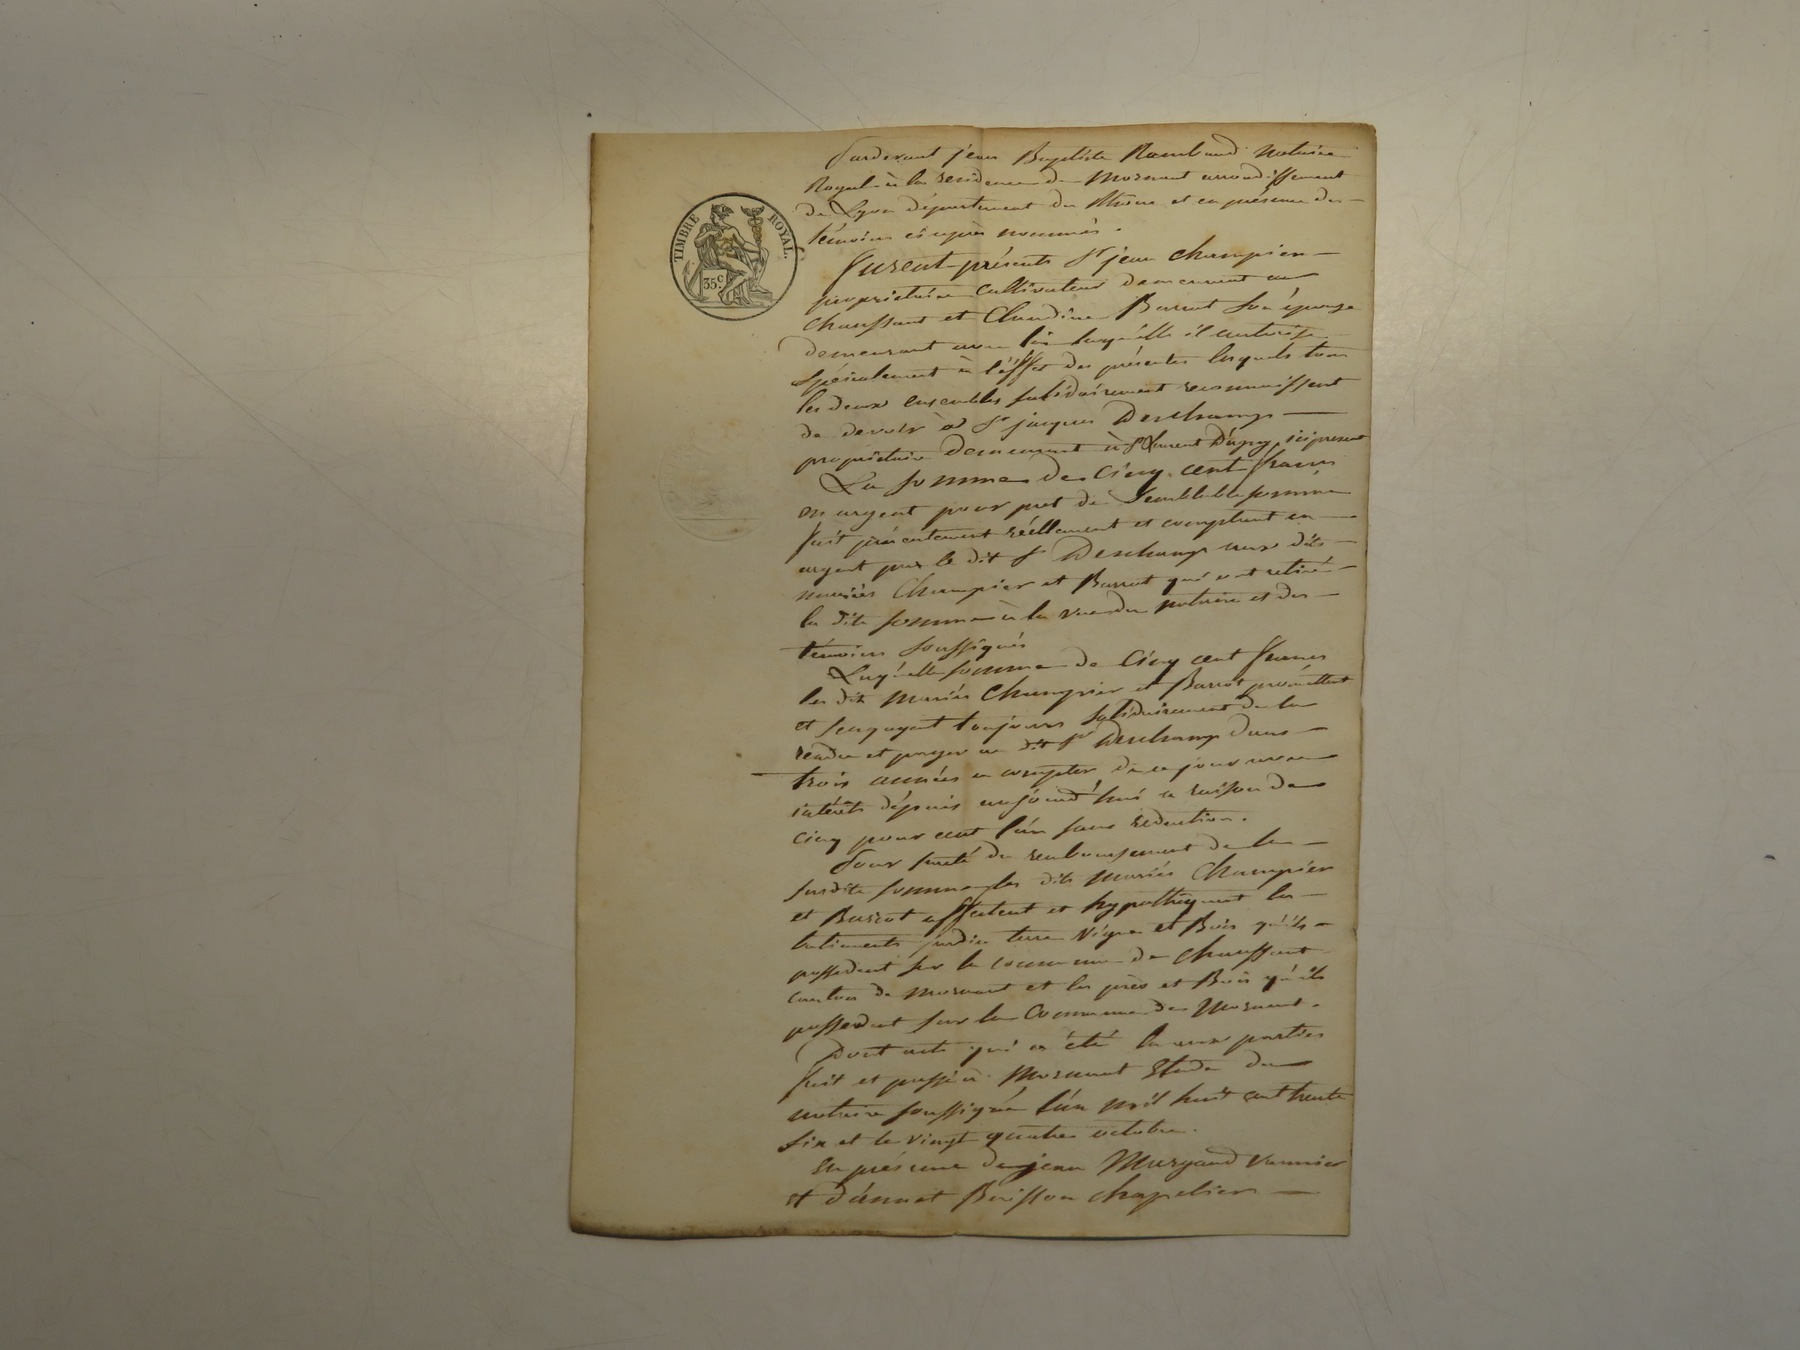 TIMBRE ROYAL.
35c
Pardevant jean Baptiste Rambaud Notaire
Royal à la residence de Mornant arrondissement
de Lyon département du Rhône et en présence des
témoins ci après nommés.
furent présents Sr jean Champier
propriétaire cultivateur demeurant au
Chaussant et Claudine Barrot son épouse
demeurant avec lui laquelle il autorise
spécialement à l'éffet des présentes lesquels tous
les deux ensembles solidairement reconnaissent
de devoir à Sr jacques Deschamp
propriétaire demeurant à St Laurent D'agny, ici present
La somme de Cinq cent francs
en argent pour pret de Semblable somme
fait présentement réellement et comptant en
argent par le dit Sr Deschamp aux dits
mariés Champier et Barrot qui ont retiré
la dite somme à la vue du notaire et des
témoins soussignés
Laquelle somme de Cinq cent francs
les dits mariés Champier et Barrot promettent
et sengagent toujours solidairement de la
rendre et payer au dit Sr Deschamp dans
trois années a compter de ce jour avec
intérêts dépuis aujourd'hui a raison de
cinq pour cent l'an sans réduction.
Pour sureté du remboursement de la
susdite somme les dits mariés Champier
et Barrot affectent et hypothèquent les
batiments jardin terre Vigne et Bois qu'ils
possedent sur la commune de Chaussant
canton de Mornant et les près et Bois qu'ils
possedent sur la Commune de Mornant.
Dont acte qui a été lu aux parties
fait et passé à Mornant Etude du
notaire soussigné l'an mil huit cent trente
six et le vingt quatre octobre.
En présence de jean Murgand Vannier
et d'annet Buisson chapelier